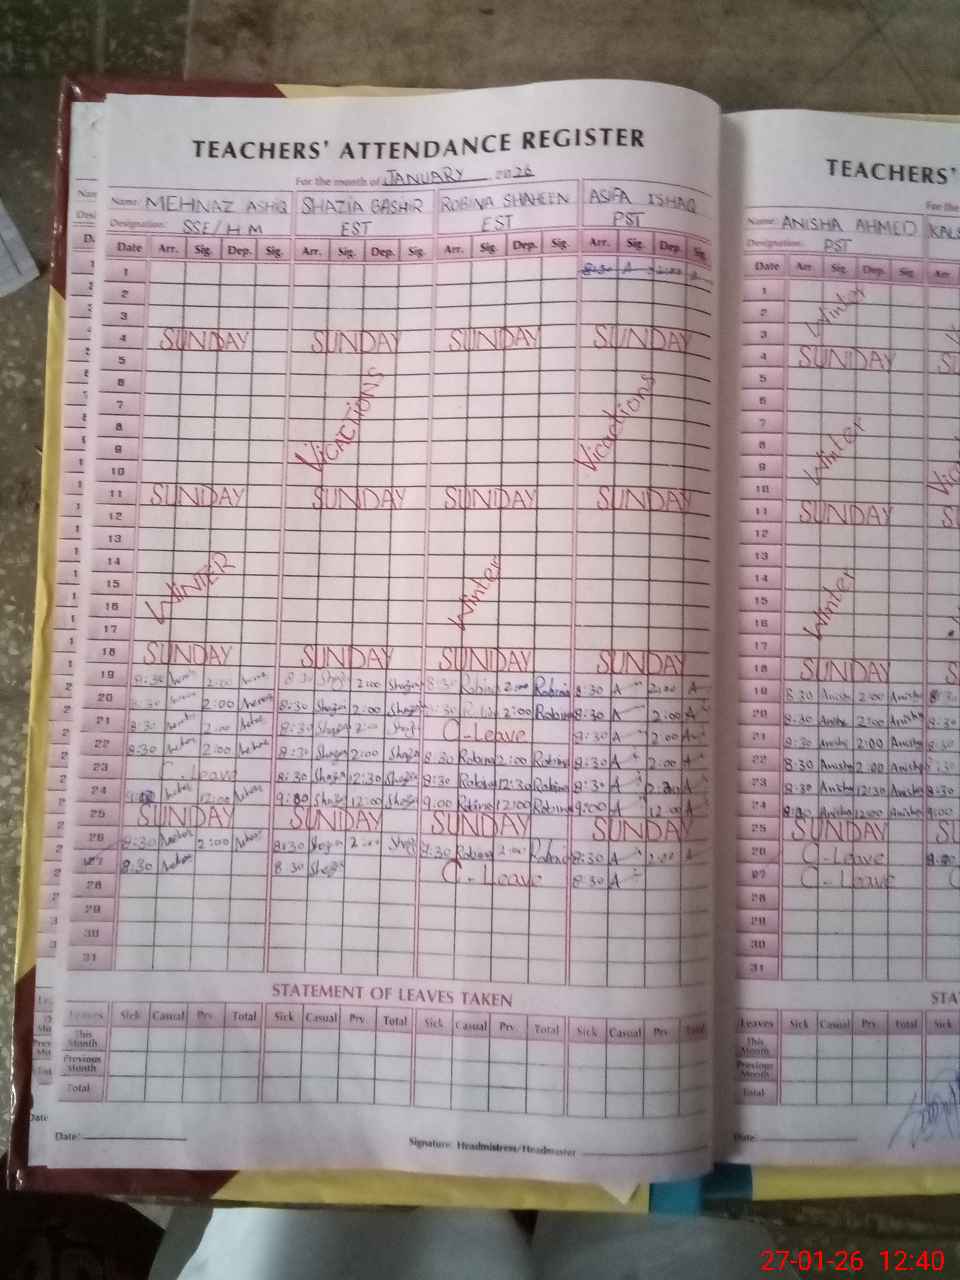 TEACHERS' ATTENDANCE REGISTER
For the month of JANUARY 2026
Name: MEHNAZ ASHIQ SHAZIA BASHIR ROBINA SHAHEEN ASIFA ISHAQ
Designation: SSE/HM EST EST PST
Date Arr. Sig. Dep. Sig. Arr. Sig. Dep. Sig. Arr. Sig. Dep. Sig. Arr. Sig. Dep. Sig.
1 8:30 A 2:00 A
2
3
4 SUNDAY SUNDAY SUNDAY SUNDAY
5
6
7
8
9 VICACTIONS Vicactions
10
11 SUNDAY SUNDAY SUNDAY SUNDAY
12
13
14
15 WINTER Winter
16
17
18 SUNDAY SUNDAY SUNDAY SUNDAY
19 8:30 2:00 8:30 Shazia 2:00 Shazia 8:30 Robina 2:00 Robina 8:30 A 2:00 A
20 8:30 2:00 8:30 Shazia 2:00 Shazia 8:30 2:00 Robina 8:30 A 2:00 A
21 8:30 2:00 8:30 Shazia 2:00 C-Leave 8:30 A 2:00 A
22 8:30 2:00 8:30 Shazia 2:00 Shazia 8:30 Robina 2:00 Robina 8:30 A 2:00 A
23 C-Leave 8:30 Shazia 12:30 Shazia 8:30 Robina 12:30 Robina 8:30 A A
24 12:00 9:00 Shazia 12:00 Shazia 9:00 Robina 12:00 Robina 9:00 A 12:00 A
25 SUNDAY SUNDAY SUNDAY SUNDAY
26 8:30 2:00 8:30 2:00 8:30 Robina 2:00 Robina 8:30 A 2:00 A
27 8:30 8:30 C-Leave 8:30 A
28
29
30
31
STATEMENT OF LEAVES TAKEN
Leaves Sick Casual Prv. Total Sick Casual Prv. Total Sick Casual Prv. Total Sick Casual Prv. Total
This Month
Previous Month
Total
Date: Signature: Headmistress/Headmaster
TEACHERS'
For the
Name: ANISHA AHMED
Designation: PST
Date Arr. Sig. Dep. Sig. Arr
1
2 Winter
3
4 SUNDAY SU
5
6
7
8 Winter
9
10
11 SUNDAY S
12
13
14
15 Winter
16
17
18 SUNDAY S
19 8:30 Anisha 2:00 Anisha
20 8:30 Anisha 2:00 Anisha 8:30
21 8:30 Anisha 2:00 Anisha 8:30
22 8:30 Anisha 2:00 Anisha 8:30
23 8:30 Anisha 12:30 Anisha 8:30
24 Anisha 12:00 Anisha 9:00
25 SUNDAY SU
26 C-Leave
27 C-Leave
28
29
30
31
STA
Leaves Sick Casual Prv. Total Sick
This Month
Previous Month
Total
Date:
27-01-26 12:40